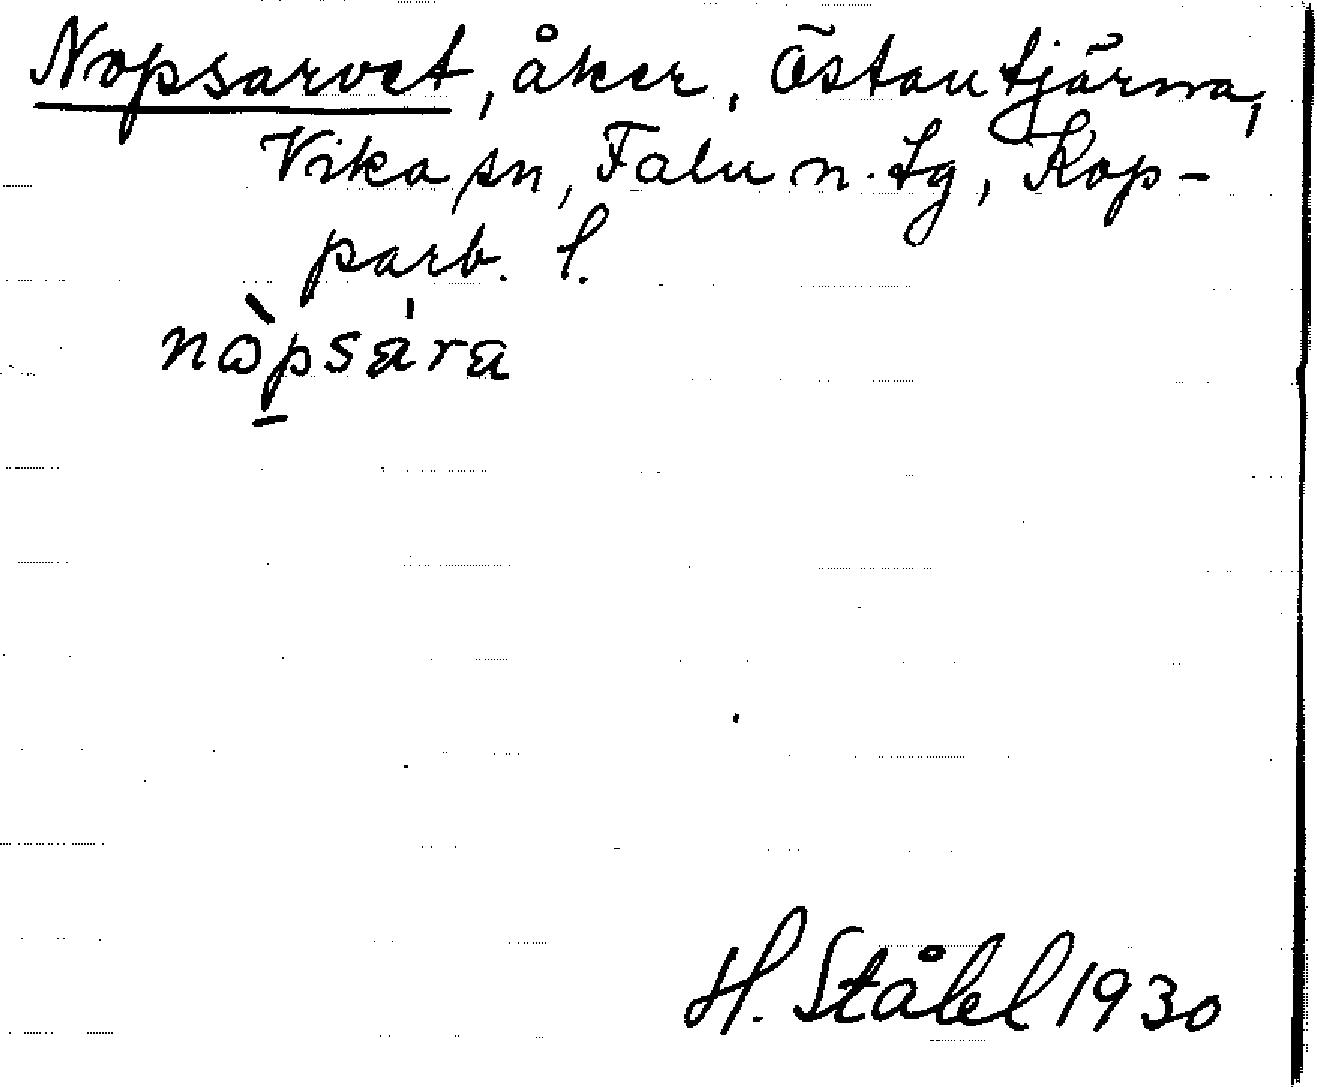 Nopsarvet, åker, Östantjärna,
Vika sn, Falu n. tg, Kop-
parb. l.
nòpsára
H. Ståhl 1930